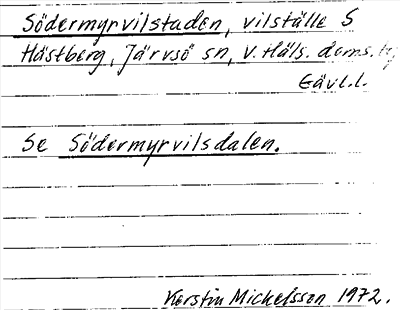 Södermyrvilstaden, vilställe S
Hästberg, Järvsö sn, V. Häls. doms.
Gävl.l.
Se Södermyrvilsdalen.
Kerstin Mickelsson 1972.